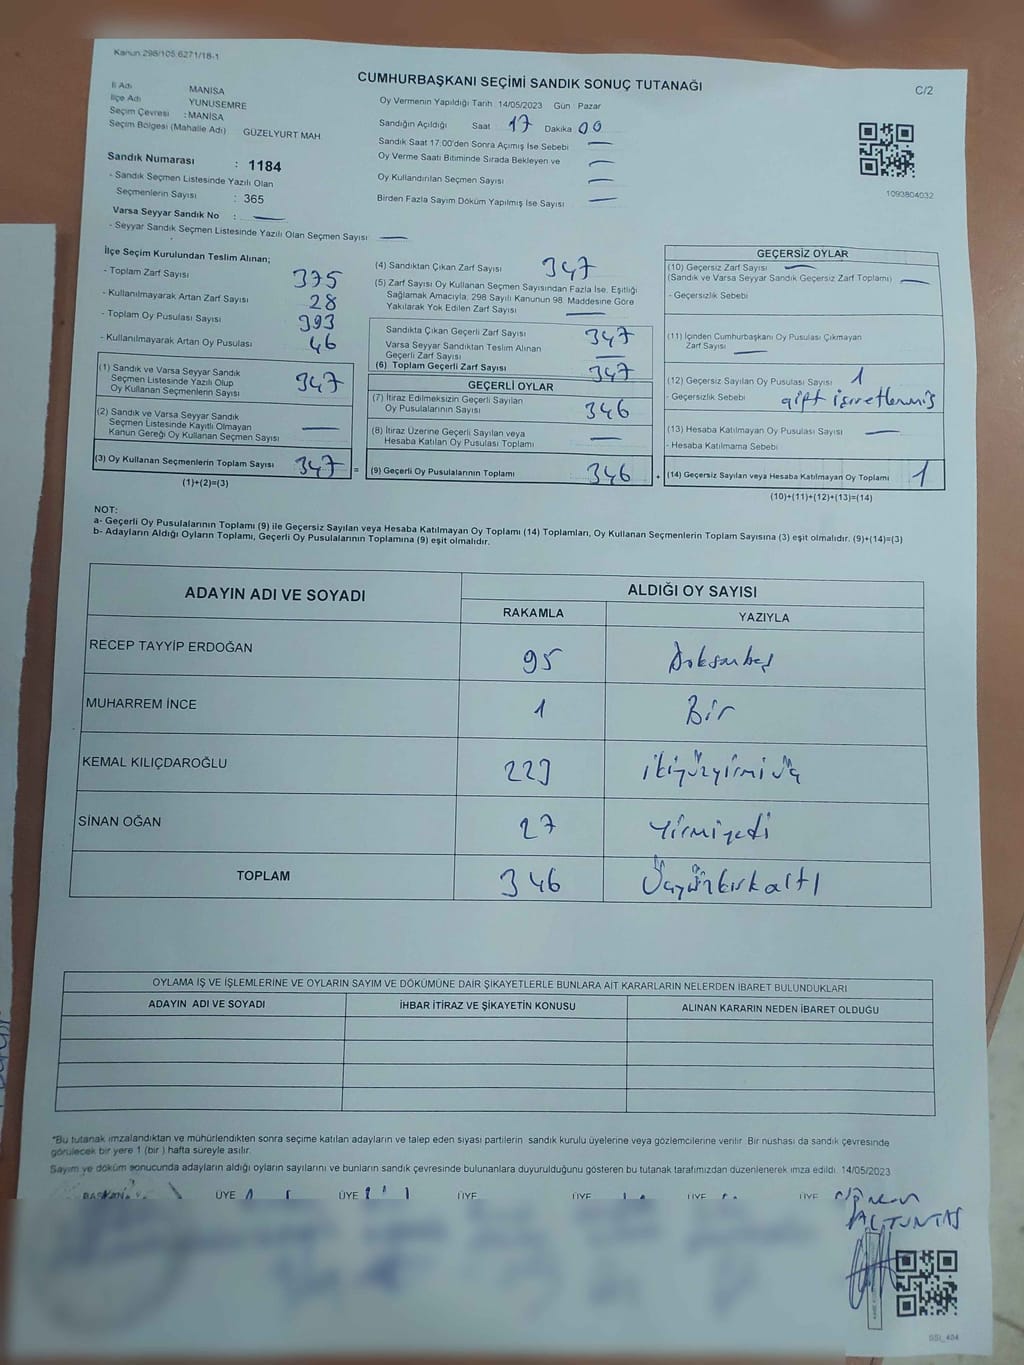 Kanun 298/105.6271/18-1
CUMHURBAŞKANI SEÇİMİ SANDIK SONUÇ TUTANAĞI
C/2
İl Adı MANİSA
İlçe Adı YUNUSEMRE
Seçim Çevresi : MANİSA
Seçim Bölgesi (Mahalle Adı) GÜZELYURT MAH
Sandık Numarası : 1184
- Sandık Seçmen Listesinde Yazılı Olan
Seçmenlerin Sayısı : 365
Varsa Seyyar Sandık No :
- Seyyar Sandık Seçmen Listesinde Yazılı Olan Seçmen Sayısı
Oy Vermenin Yapıldığı Tarih 14/05/2023 Gün Pazar
Sandığın Açıldığı Saat 17 Dakika 00
Sandık Saat 17.00'den Sonra Açımış İse Sebebi
Oy Verme Saati Bitiminde Sırada Bekleyen ve
Oy Kullandırılan Seçmen Sayısı
Birden Fazla Sayım Döküm Yapılmış İse Sayısı
1093804032
İlçe Seçim Kurulundan Teslim Alınan;
- Toplam Zarf Sayısı 375
- Kullanılmayarak Artan Zarf Sayısı 28
- Toplam Oy Pusulası Sayısı 393
- Kullanılmayarak Artan Oy Pusulası 46
(1) Sandık ve Varsa Seyyar Sandık
Seçmen Listesinde Yazılı Olup
Oy Kullanan Seçmenlerin Sayısı 347
(2) Sandık ve Varsa Seyyar Sandık
Seçmen Listesinde Kayıtlı Olmayan
Kanun Gereği Oy Kullanan Seçmen Sayısı
(3) Oy Kullanan Seçmenlerin Toplam Sayısı 347 =
(1)+(2)=(3)
(4) Sandıktan Çıkan Zarf Sayısı 347
(5) Zarf Sayısı Oy Kullanan Seçmen Sayısından Fazla İse, Eşitliği
Sağlamak Amacıyla, 298 Sayılı Kanunun 98. Maddesine Göre
Yakılarak Yok Edilen Zarf Sayısı
Sandıkta Çıkan Geçerli Zarf Sayısı 347
Varsa Seyyar Sandıktan Teslim Alınan
Geçerli Zarf Sayısı
(6) Toplam Geçerli Zarf Sayısı 347
GEÇERLİ OYLAR
(7) İtiraz Edilmeksizin Geçerli Sayılan
Oy Pusulalarının Sayısı 346
(8) İtiraz Üzerine Geçerli Sayılan veya
Hesaba Katılan Oy Pusulası Toplamı
(9) Geçerli Oy Pusulalarının Toplamı 346 +
GEÇERSİZ OYLAR
(10) Geçersiz Zarf Sayısı
(Sandık ve Varsa Seyyar Sandık Geçersiz Zarf Toplamı)
- Geçersizlik Sebebi
(11) İçinden Cumhurbaşkanı Oy Pusulası Çıkmayan
Zarf Sayısı
(12) Geçersiz Sayılan Oy Pusulası Sayısı 1
- Geçersizlik Sebebi çift işaretlenmiş
(13) Hesaba Katılmayan Oy Pusulası Sayısı
- Hesaba Katılmama Sebebi
(14) Geçersiz Sayılan veya Hesaba Katılmayan Oy Toplamı 1
(10)+(11)+(12)+(13)=(14)
NOT:
a- Geçerli Oy Pusulalarının Toplamı (9) ile Geçersiz Sayılan veya Hesaba Katılmayan Oy Toplamı (14) Toplamları, Oy Kullanan Seçmenlerin Toplam Sayısına (3) eşit olmalıdır. (9)+(14)=(3)
b- Adayların Aldığı Oyların Toplamı, Geçerli Oy Pusulalarının Toplamına (9) eşit olmalıdır.
ADAYIN ADI VE SOYADI ALDIĞI OY SAYISI
RAKAMLA YAZIYLA
RECEP TAYYİP ERDOĞAN 95 Doksanbeş
MUHARREM İNCE 1 Bir
KEMAL KILIÇDAROĞLU 223 ikiyüzyirmiüç
SİNAN OĞAN 27 Yirmiyedi
TOPLAM 346 Üçyüzkırkaltı
OYLAMA İŞ VE İŞLEMLERİNE VE OYLARIN SAYIM VE DÖKÜMÜNE DAİR ŞİKAYETLERLE BUNLARA AİT KARARLARIN NELERDEN İBARET BULUNDUKLARI
ADAYIN ADI VE SOYADI İHBAR İTİRAZ VE ŞİKAYETİN KONUSU ALINAN KARARIN NEDEN İBARET OLDUĞU
*Bu tutanak imzalandıktan ve mühürlendikten sonra seçime katılan adayların ve talep eden siyasi partilerin sandık kurulu üyelerine veya gözlemcilerine verilir. Bir nushası da sandık çevresinde
görülecek bir yere 1 (bir ) hafta süreyle asılır.
Sayım ve döküm sonucunda adayların aldığı oyların sayılarını ve bunların sandık çevresinde bulunanlara duyurulduğunu gösteren bu tutanak tarafımızdan düzenlenerek imza edildi. 14/05/2023
BAŞKAN ÜYE ÜYE ÜYE ÜYE ÜYE ÜYE
ALTUNTAŞ